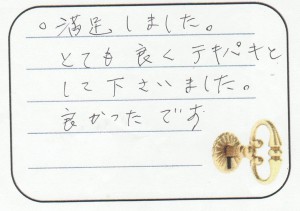 。満足しました。
とても良くテキパキと
して下さいました。
良かったです